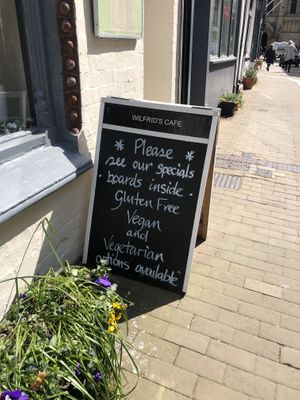 WILFRID'S CAFE
* Please *
see our specials
• boards inside •
Gluten Free
Vegan
and
Vegetarian
options available